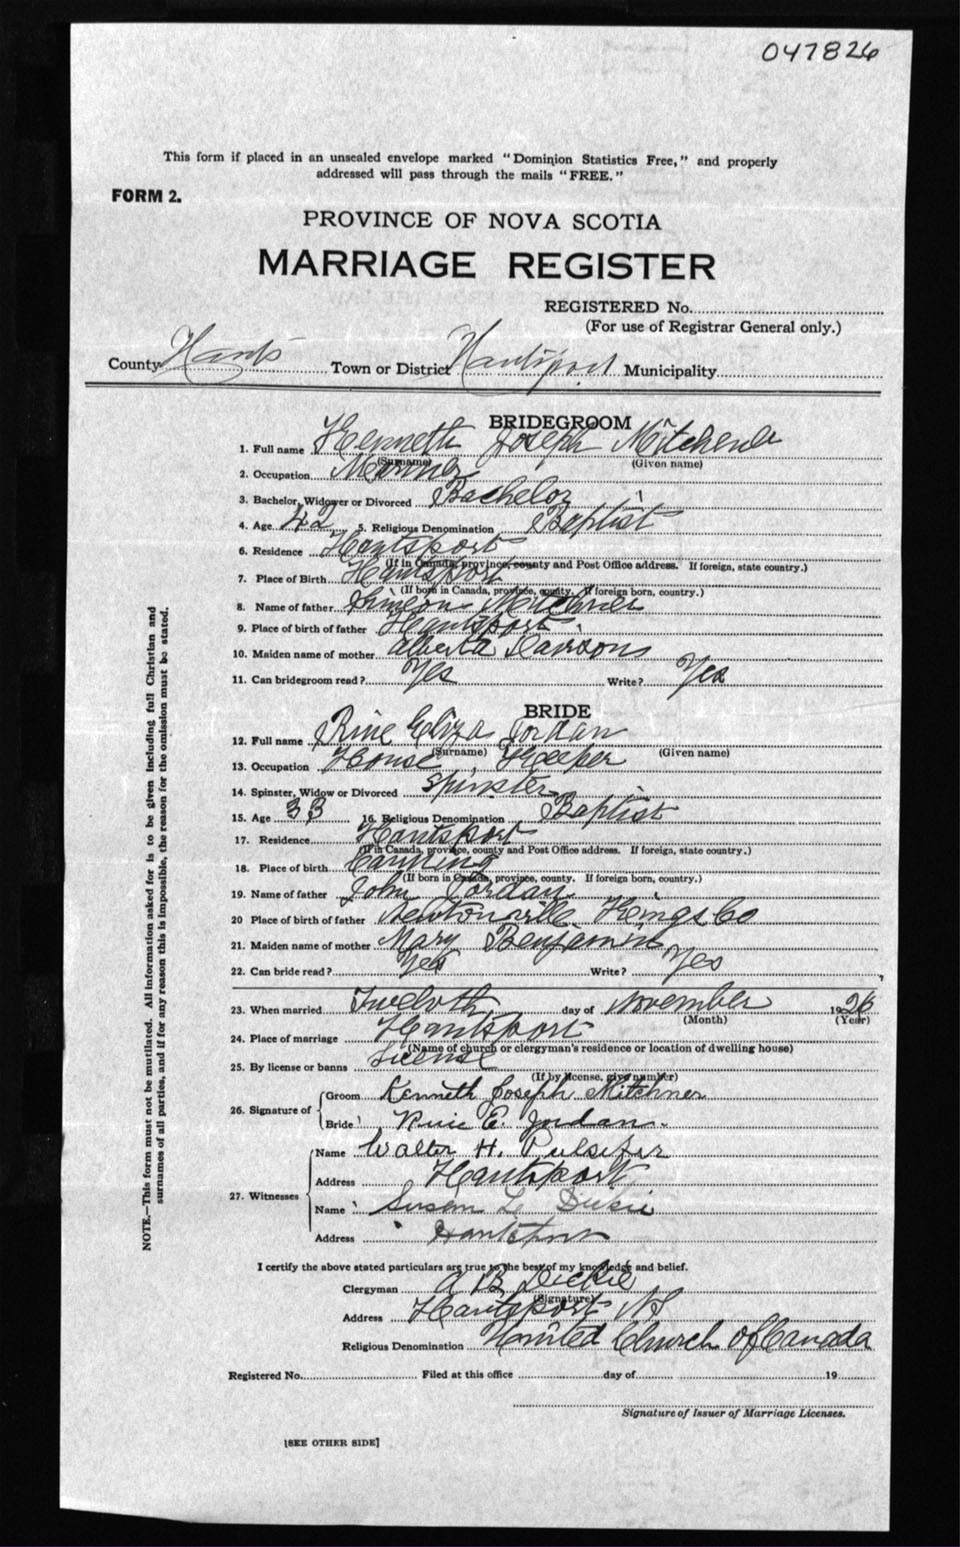 047826
This form if placed in an unsealed envelope marked "Dominion Statistics Free," and properly
addressed will pass through the mails "FREE."
FORM 2.
PROVINCE OF NOVA SCOTIA
MARRIAGE REGISTER
REGISTERED No.
(For use of Registrar General only.)
County Hants Town or District Hantsport Municipality
BRIDEGROOM
1. Full name Kenneth Joseph Mitchener
(Surname) (Given name)
2. Occupation
3. Bachelor, Widower or Divorced Bachelor
4. Age 42 5. Religious Denomination Baptist
6. Residence Hantsport
(If in Canada, province, county and Post Office address. If foreign, state country.)
7. Place of Birth Hantsport
(If born in Canada, province, county. If foreign born, country.)
8. Name of father Simeon Mitchner
9. Place of birth of father Hantsport
10. Maiden name of mother Alberta
11. Can bridegroom read? Yes Write? Yes
BRIDE
12. Full name Eliza Jordan
(Surname) (Given name)
13. Occupation House Keeper
14. Spinster, Widow or Divorced Spinster
15. Age 33 16. Religious Denomination Baptist
17. Residence Hantsport
(If in Canada, province, county and Post Office address. If foreign, state country.)
18. Place of birth Canning
(If born in Canada, province, county. If foreign born, country.)
19. Name of father John Jordan
20 Place of birth of father Newtonville Kings Co
21. Maiden name of mother Mary Benjamin
22. Can bride read? Yes Write? Yes
23. When married Twelvth day of November 1926
(Month) (Year)
24. Place of marriage Hantsport
(Name of church or clergyman's residence or location of dwelling house)
25. By license or banns License
(If by license, give number)
26. Signature of Groom Kenneth Joseph Mitchner
Bride E. Jordan.
27. Witnesses
Name Walter H. Pulsifer
Address Hantsport
Name Susan L Dickie
Address Hantsport
I certify the above stated particulars are true to the best of my knowledge and belief.
Clergyman A B Dickie
(Signature)
Address Hantsport NS
Religious Denomination United Church of Canada
Registered No. Filed at this office day of 19
Signature of Issuer of Marriage Licenses.
[SEE OTHER SIDE]
NOTE.—This form must not be mutilated. All information asked for is to be given including full Christian and
surnames of all parties, and if for any reason this is impossible, the reason for the omission must be stated.